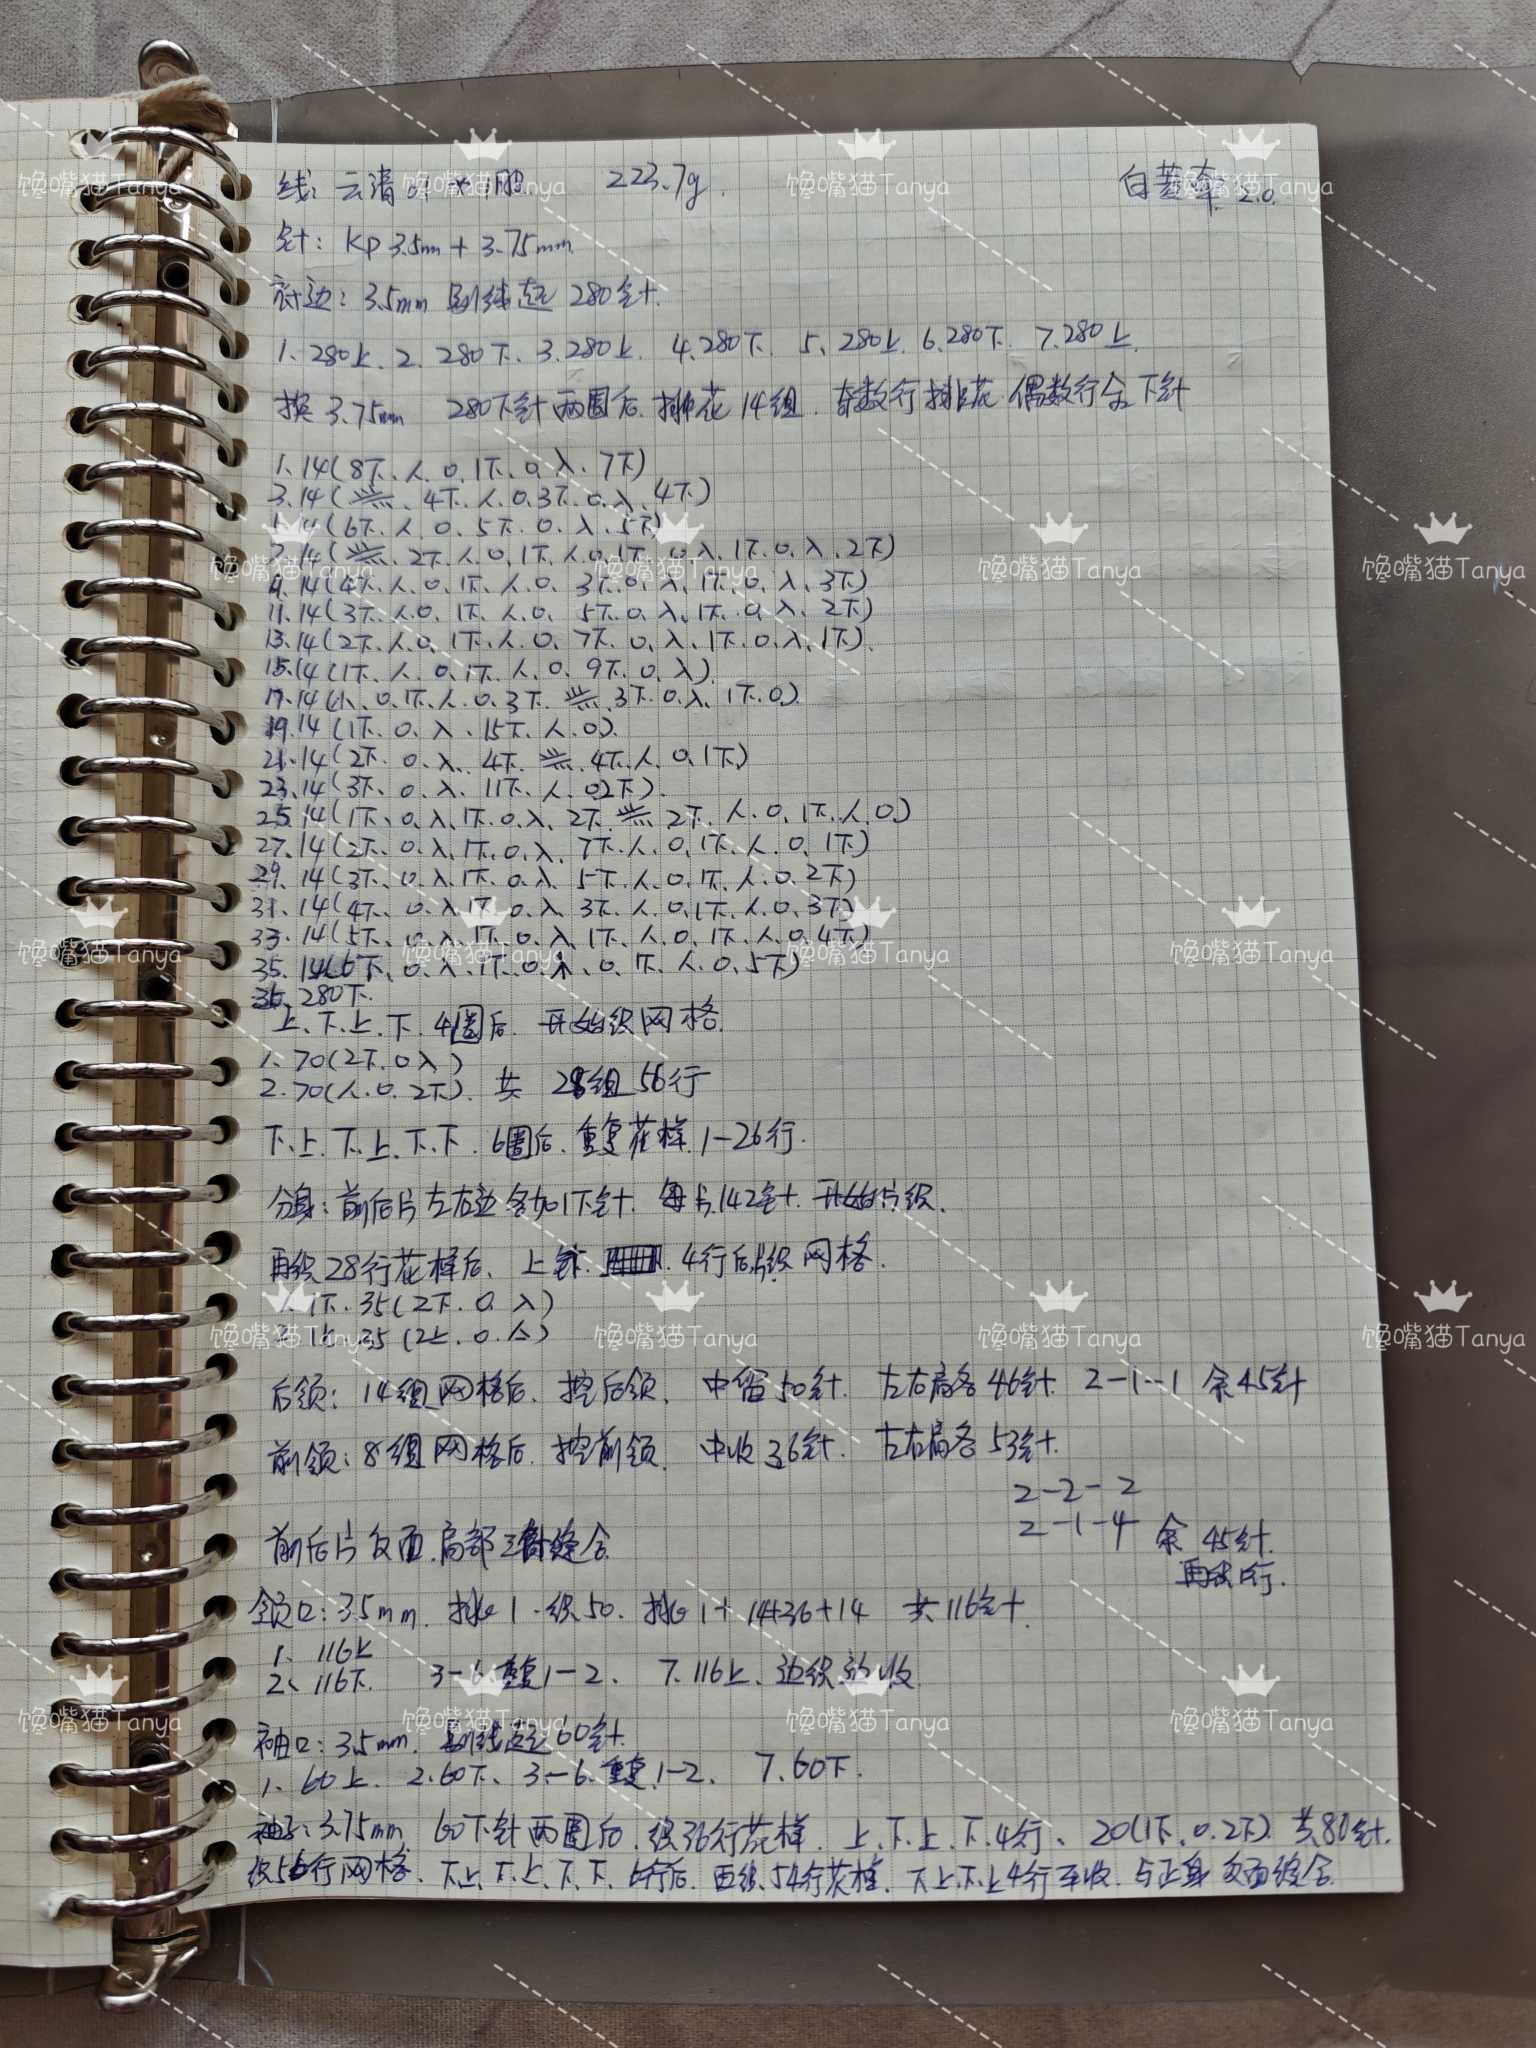 线：云清 223.7g. 2.0
针：KP 3.5mm + 3.75mm
衬边：3.5mm 别线起 280针.
1、280上. 2、280下、3.280上 4.280下. 5、280上. 6.280下. 7.280上.
换 3.75mm 280下针两圈后. 排花14组. 奇数行排花. 偶数行全下针
1、14(8下、人.0.1下.0.入.7下)
3.14( 、4下.人.0.3下.0.入.4下)
14(6下.人.0.5下.0.入.5下)
7.14( 、2下.人.0.1下.人.0.1下.0.入.1下.0.入.2下)
9.14(4下.人.0.1下.人.0.3下.0.入.1下.0.入.3下)
11.14(3下.人.0.1下.人.0.5下.0.入.1下.0.入.2下)
13.14(2下.人.0.1下.人.0.7下.0.入.1下.0.入.1下).
15.14(1下.人.0.1下.人.0.9下.0.入).
17.14( 0.1下.人.0.3下. 3下.0.入.1下.0).
19.14(1下.0.入.15下.人.0).
21.14(2下.0.入.4下. 4下.人.0.1下)
23.14(3下.0.入.11下.人.0.2下).
25.14(1下.0.入.1下.0.入.2下. 2下.人.0.1下.人.0.)
27.14(2下.0.入.1下.0.入.7下.人.0.1下.人.0.1下)
29.14(3下.0.入.1下.0.入.5下.人.0.1下.人.0.2下)
31.14(4下.0.入.1下.0.入.3下.人.0.1下.人.0.3下)
33.14(5下.0.入.1下.0.入.1下.人.0.1下.人.0.4下)
35.14(6下.0.入.1下.0. 0.1下.人.0.5下)
36.280下.
上.下.上.下.4圈后.开始织网格.
1.70(2下.0入)
2.70(人.0.2下).共 28组56行
下.上.下.上.下.下.6圈后.重复花样.1-26行.
分身：前后片左右边各加1下针.每片142针.开始片织.
再织28行花样后、上 4行后片织网格.
1下.35(2下.0.入)
35(2上.0.人)
后领：14组网格后.挖后领.中留50针.左右肩各46针.2-1-1 余45针
前领：8组网格后.挖前领.中收36针.左右肩各53针.
2-2-2
2-1-4 余45针.
前后片反面.肩部三针缝合
再织 行.
领口：3.5mm.挑1.织50.挑1+14+36+14 共116针.
1、116上
2、116下. 3-6.重复1-2、 7.116上、边织边收
袖口：3.5mm.别线起60针.
1、60上. 2.60下、3-6.重复1-2、 7.60下.
袖子：3.75mm.60下针两圈后.织36行花样.上.下.上.下.4行、20(1下.0.2下).共80针.
织56行网格.下上.下.上.下.下.6行后.再织54行花样.下上下上4行平收.与正身反面缝合.